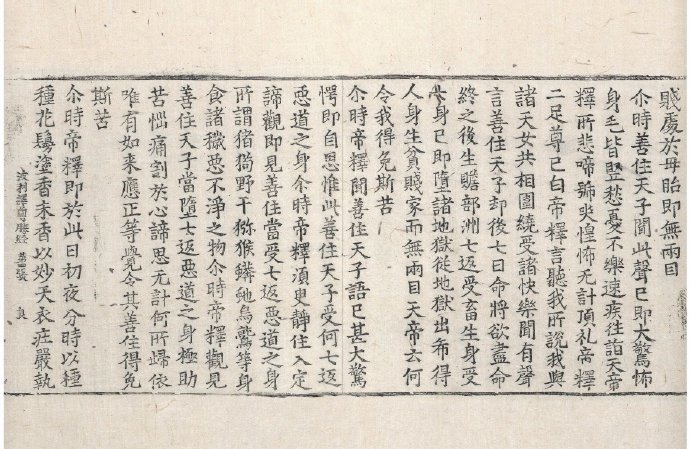 賤處於母胎即無兩目
尒時善住天子聞此聲已即大驚怖
身毛皆竪愁憂不樂速疾往詣天帝
釋所悲啼號哭惶怖无計頂礼帝釋
二足尊已白帝釋言聽我所說我與
諸天女共相圍繞受諸快樂聞有聲
言善住天子却後七日命將欲盡命
終之後生贍部洲七返受畜生身受
身已即墮諸地獄從地獄出希得
人身生貧賤家而無兩目天帝云何
令我得免斯苦
尒時帝釋聞善住天子語已甚大驚
愕即自思惟此善住天子受何七返
惡道之身尒時帝釋須臾靜住入定
諦觀即見善住當受七返惡道之身
所謂猪狗野干獼猴蟒虵烏鷲等身
食諸穢惡不淨之物尒時帝釋觀見
善住天子當墮七返惡道之身極助
苦惱痛割於心諦思无計何所歸依
唯有如来應正等覺令其善住得免
斯苦
尒時帝釋即於此日初夜分時以種
種花鬘塗香末香以妙天衣莊嚴執
波利譯尊勝經 第四張 良